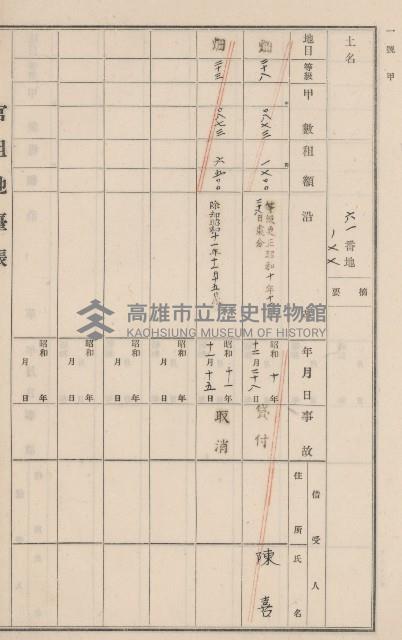 一號甲
土名
六一番地
一××
摘要
地目
等級
甲數
租額
沿革
年月日
事故
借受人
住所
氏名
畑
二十八
〇〇八七三
一×〇〇
等級更正昭和十年十
二月二十八日處分
昭和十年
十二月二十八日
貸付
陳喜
畑
二十三
〇〇八七三
六五〇〇
除却昭和十一年十一月十五日
昭和十一年
十一月十五日
取消
昭和年
月日
昭和年
月日
昭和年
月日
昭和年
月日
官租地臺帳
高雄市立歷史博物館
KAOHSIUNG MUSEUM OF HISTORY